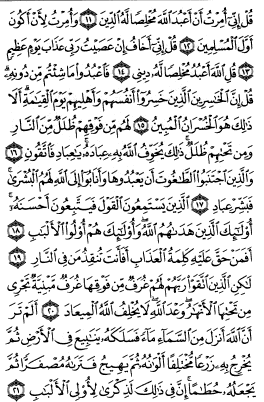 قُلْ إِنِّىٓ أُمِرْتُ أَنْ أَعْبُدَ ٱللَّهَ مُخْلِصًا لَّهُ ٱلدِّينَ ١١ وَأُمِرْتُ لِأَنْ أَكُونَ
أَوَّلَ ٱلْمُسْلِمِينَ ١٢ قُلْ إِنِّىٓ أَخَافُ إِنْ عَصَيْتُ رَبِّى عَذَابَ يَوْمٍ عَظِيمٍ
١٣ قُلِ ٱللَّهَ أَعْبُدُ مُخْلِصًا لَّهُۥ دِينِى ١٤ فَٱعْبُدُوا۟ مَا شِئْتُم مِّن دُونِهِۦ ۗ
قُلْ إِنَّ ٱلْخَٰسِرِينَ ٱلَّذِينَ خَسِرُوٓا۟ أَنفُسَهُمْ وَأَهْلِيهِمْ يَوْمَ ٱلْقِيَٰمَةِ ۗ أَلَا
ذَٰلِكَ هُوَ ٱلْخُسْرَانُ ٱلْمُبِينُ ١٥ لَهُم مِّن فَوْقِهِمْ ظُلَلٌ مِّنَ ٱلنَّارِ
وَمِن تَحْتِهِمْ ظُلَلٌ ۚ ذَٰلِكَ يُخَوِّفُ ٱللَّهُ بِهِۦ عِبَادَهُۥ ۚ يَٰعِبَادِ فَٱتَّقُونِ
١٦ وَٱلَّذِينَ ٱجْتَنَبُوا۟ ٱلطَّٰغُوتَ أَن يَعْبُدُوهَا وَأَنَابُوٓا۟ إِلَى ٱللَّهِ لَهُمُ ٱلْبُشْرَىٰ ۚ
فَبَشِّرْ عِبَادِ ١٧ ٱلَّذِينَ يَسْتَمِعُونَ ٱلْقَوْلَ فَيَتَّبِعُونَ أَحْسَنَهُۥٓ ۚ
أُو۟لَٰٓئِكَ ٱلَّذِينَ هَدَىٰهُمُ ٱللَّهُ ۖ وَأُو۟لَٰٓئِكَ هُمْ أُو۟لُوا۟ ٱلْأَلْبَٰبِ ١٨
أَفَمَنْ حَقَّ عَلَيْهِ كَلِمَةُ ٱلْعَذَابِ أَفَأَنتَ تُنقِذُ مَن فِى ٱلنَّارِ ١٩
لَٰكِنِ ٱلَّذِينَ ٱتَّقَوْا۟ رَبَّهُمْ لَهُمْ غُرَفٌ مِّن فَوْقِهَا غُرَفٌ مَّبْنِيَّةٌ تَجْرِى
مِن تَحْتِهَا ٱلْأَنْهَٰرُ ۖ وَعْدَ ٱللَّهِ ۖ لَا يُخْلِفُ ٱللَّهُ ٱلْمِيعَادَ ٢٠ أَلَمْ تَرَ
أَنَّ ٱللَّهَ أَنزَلَ مِنَ ٱلسَّمَآءِ مَآءً فَسَلَكَهُۥ يَنَٰبِيعَ فِى ٱلْأَرْضِ ثُمَّ
يُخْرِجُ بِهِۦ زَرْعًا مُّخْتَلِفًا أَلْوَٰنُهُۥ ثُمَّ يَهِيجُ فَتَرَىٰهُ مُصْفَرًّا ثُمَّ
يَجْعَلُهُۥ حُطَٰمًا ۚ إِنَّ فِى ذَٰلِكَ لَذِكْرَىٰ لِأُو۟لِى ٱلْأَلْبَٰبِ ٢١